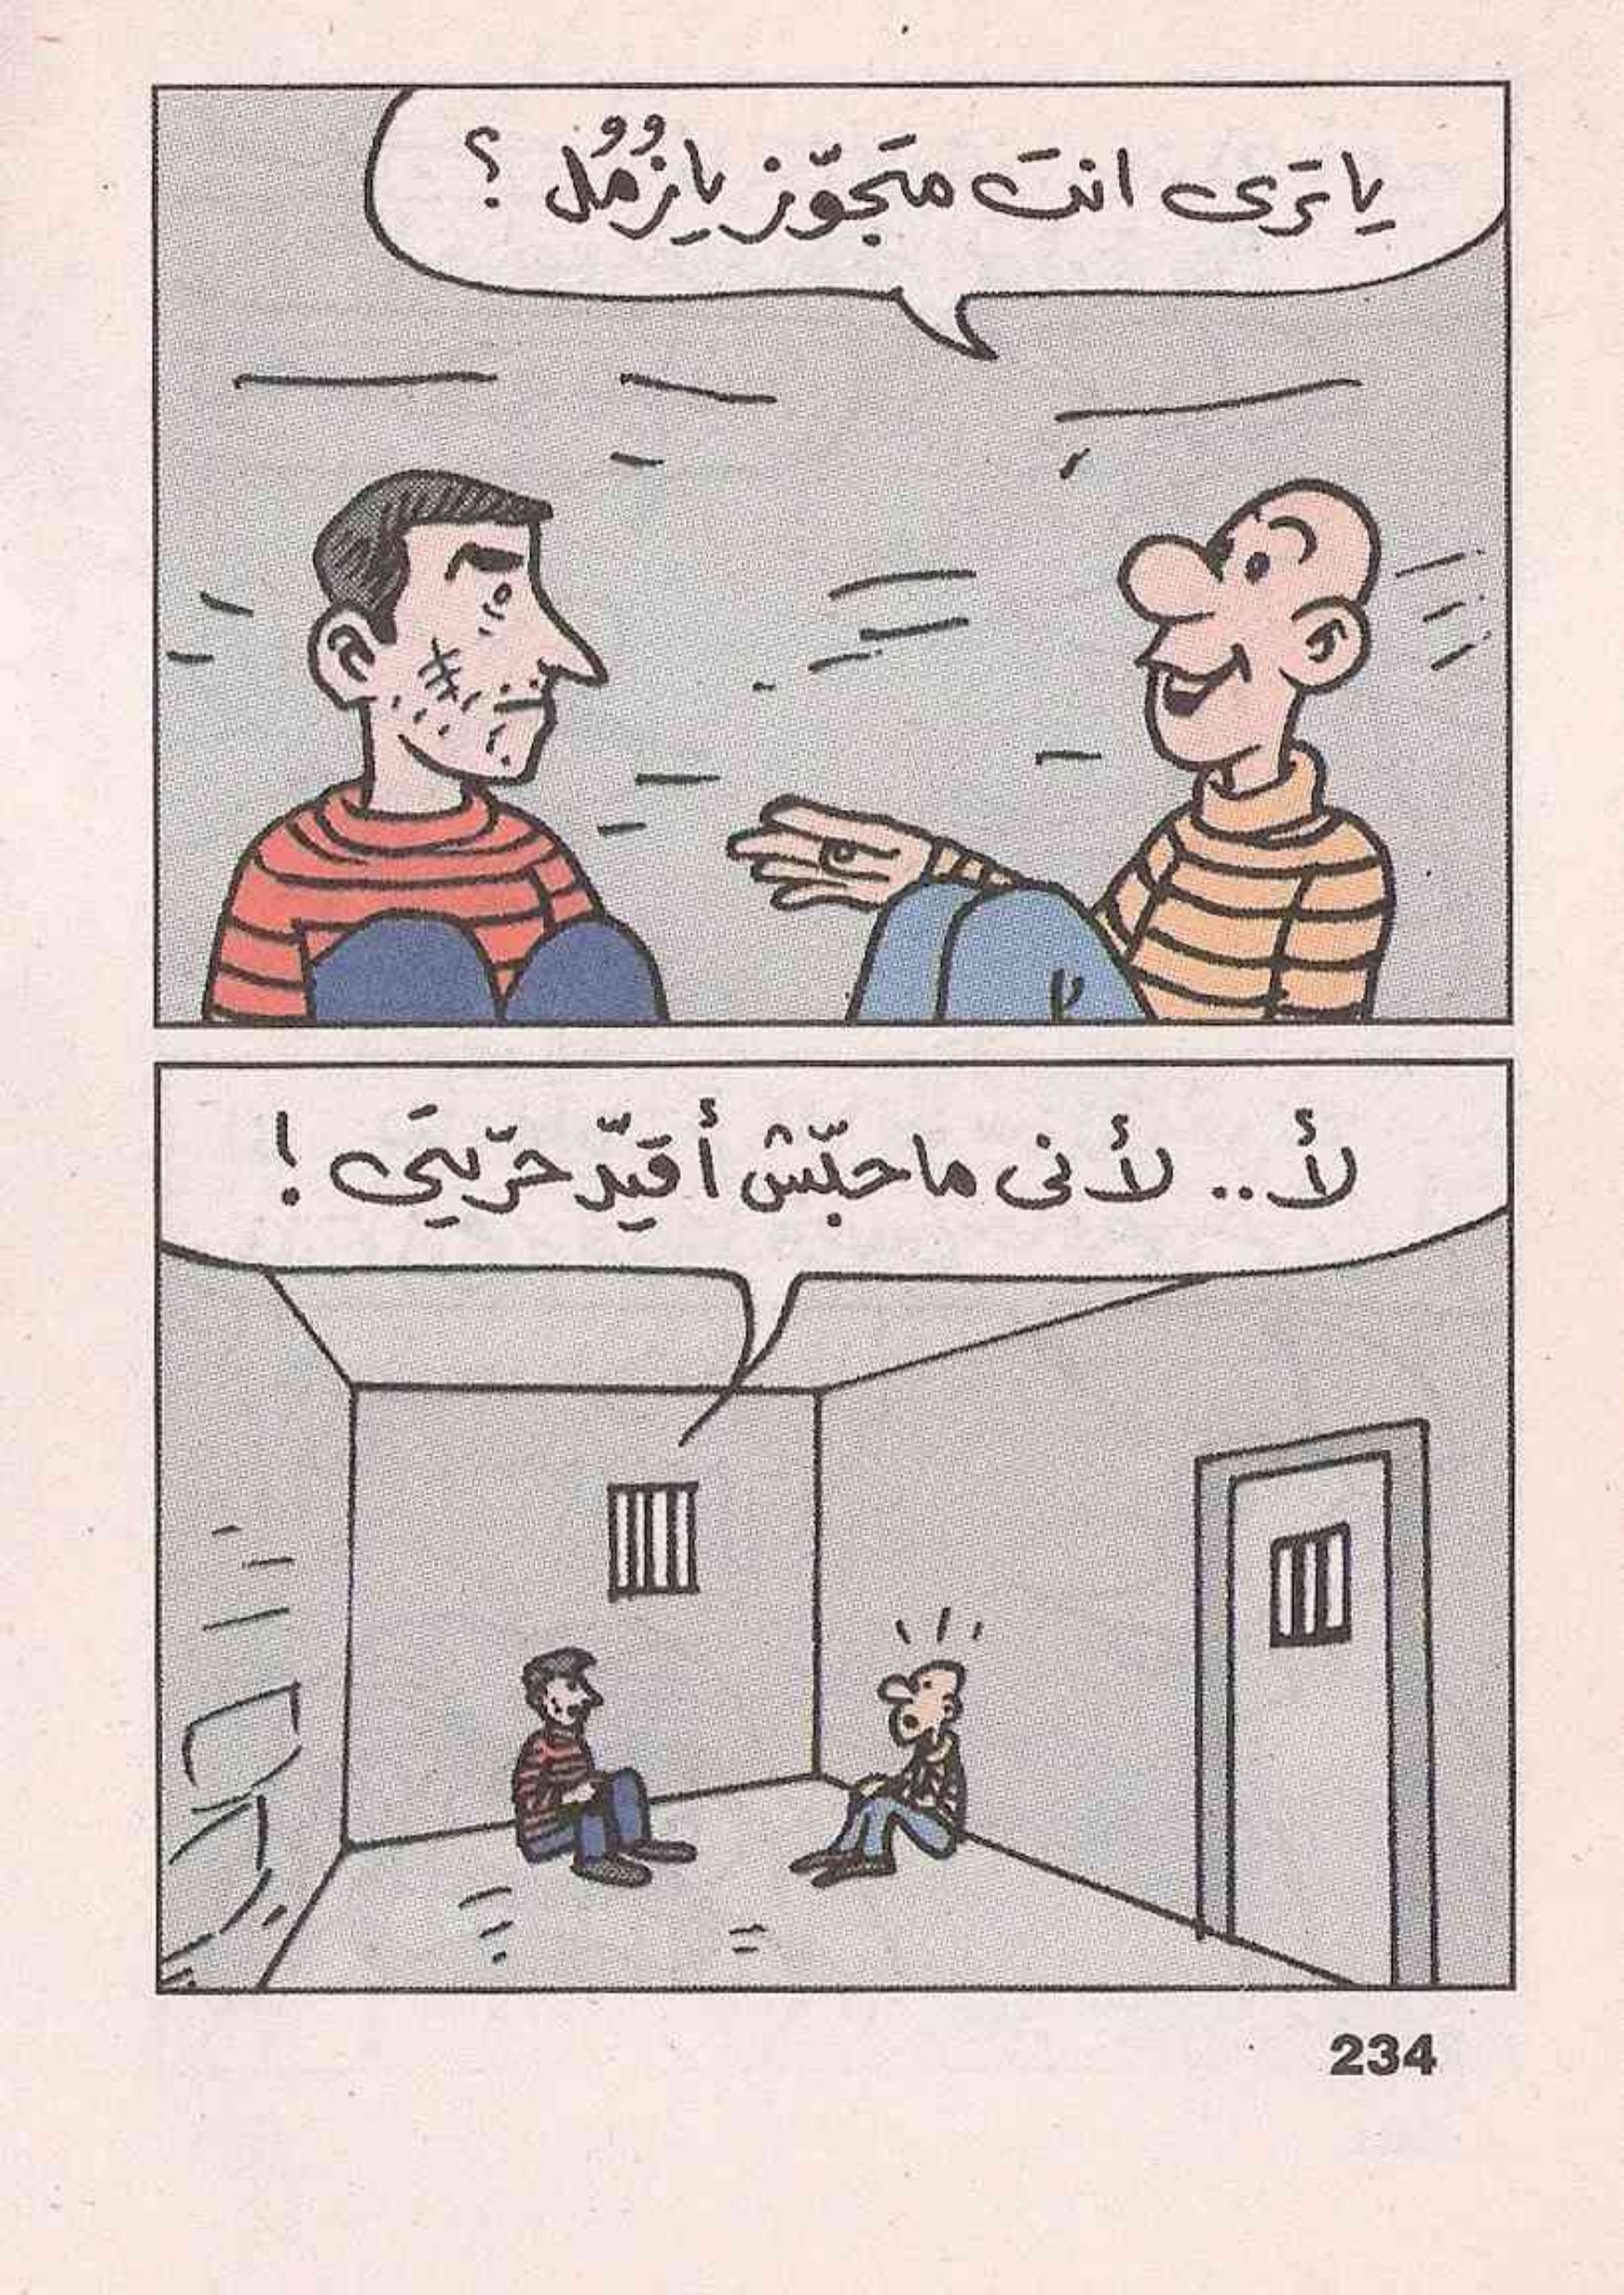 يا تَرى انتَ متَجوّز يا زُمُل ؟
لأ .. لأنى ما حبّش أقيّد حرّيتَى !
234